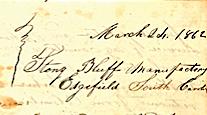 March 24. 1862
Stony Bluff Manufactory
Edgefield South